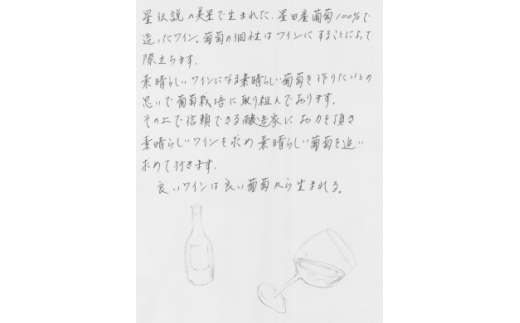 星伝説の美星で生まれた、星田産葡萄100%で
造ったワイン。葡萄の個性はワインにすることによって
際立ちます。
素晴らしいワインになる素晴らしい葡萄を作りたいとの
思いで葡萄栽培に取り組んであります。
その上で信頼できる醸造家にお力を頂き
素晴らしいワインを求め素晴らしい葡萄を追い
求めて行きます。
良いワインは良い葡萄から生まれる。